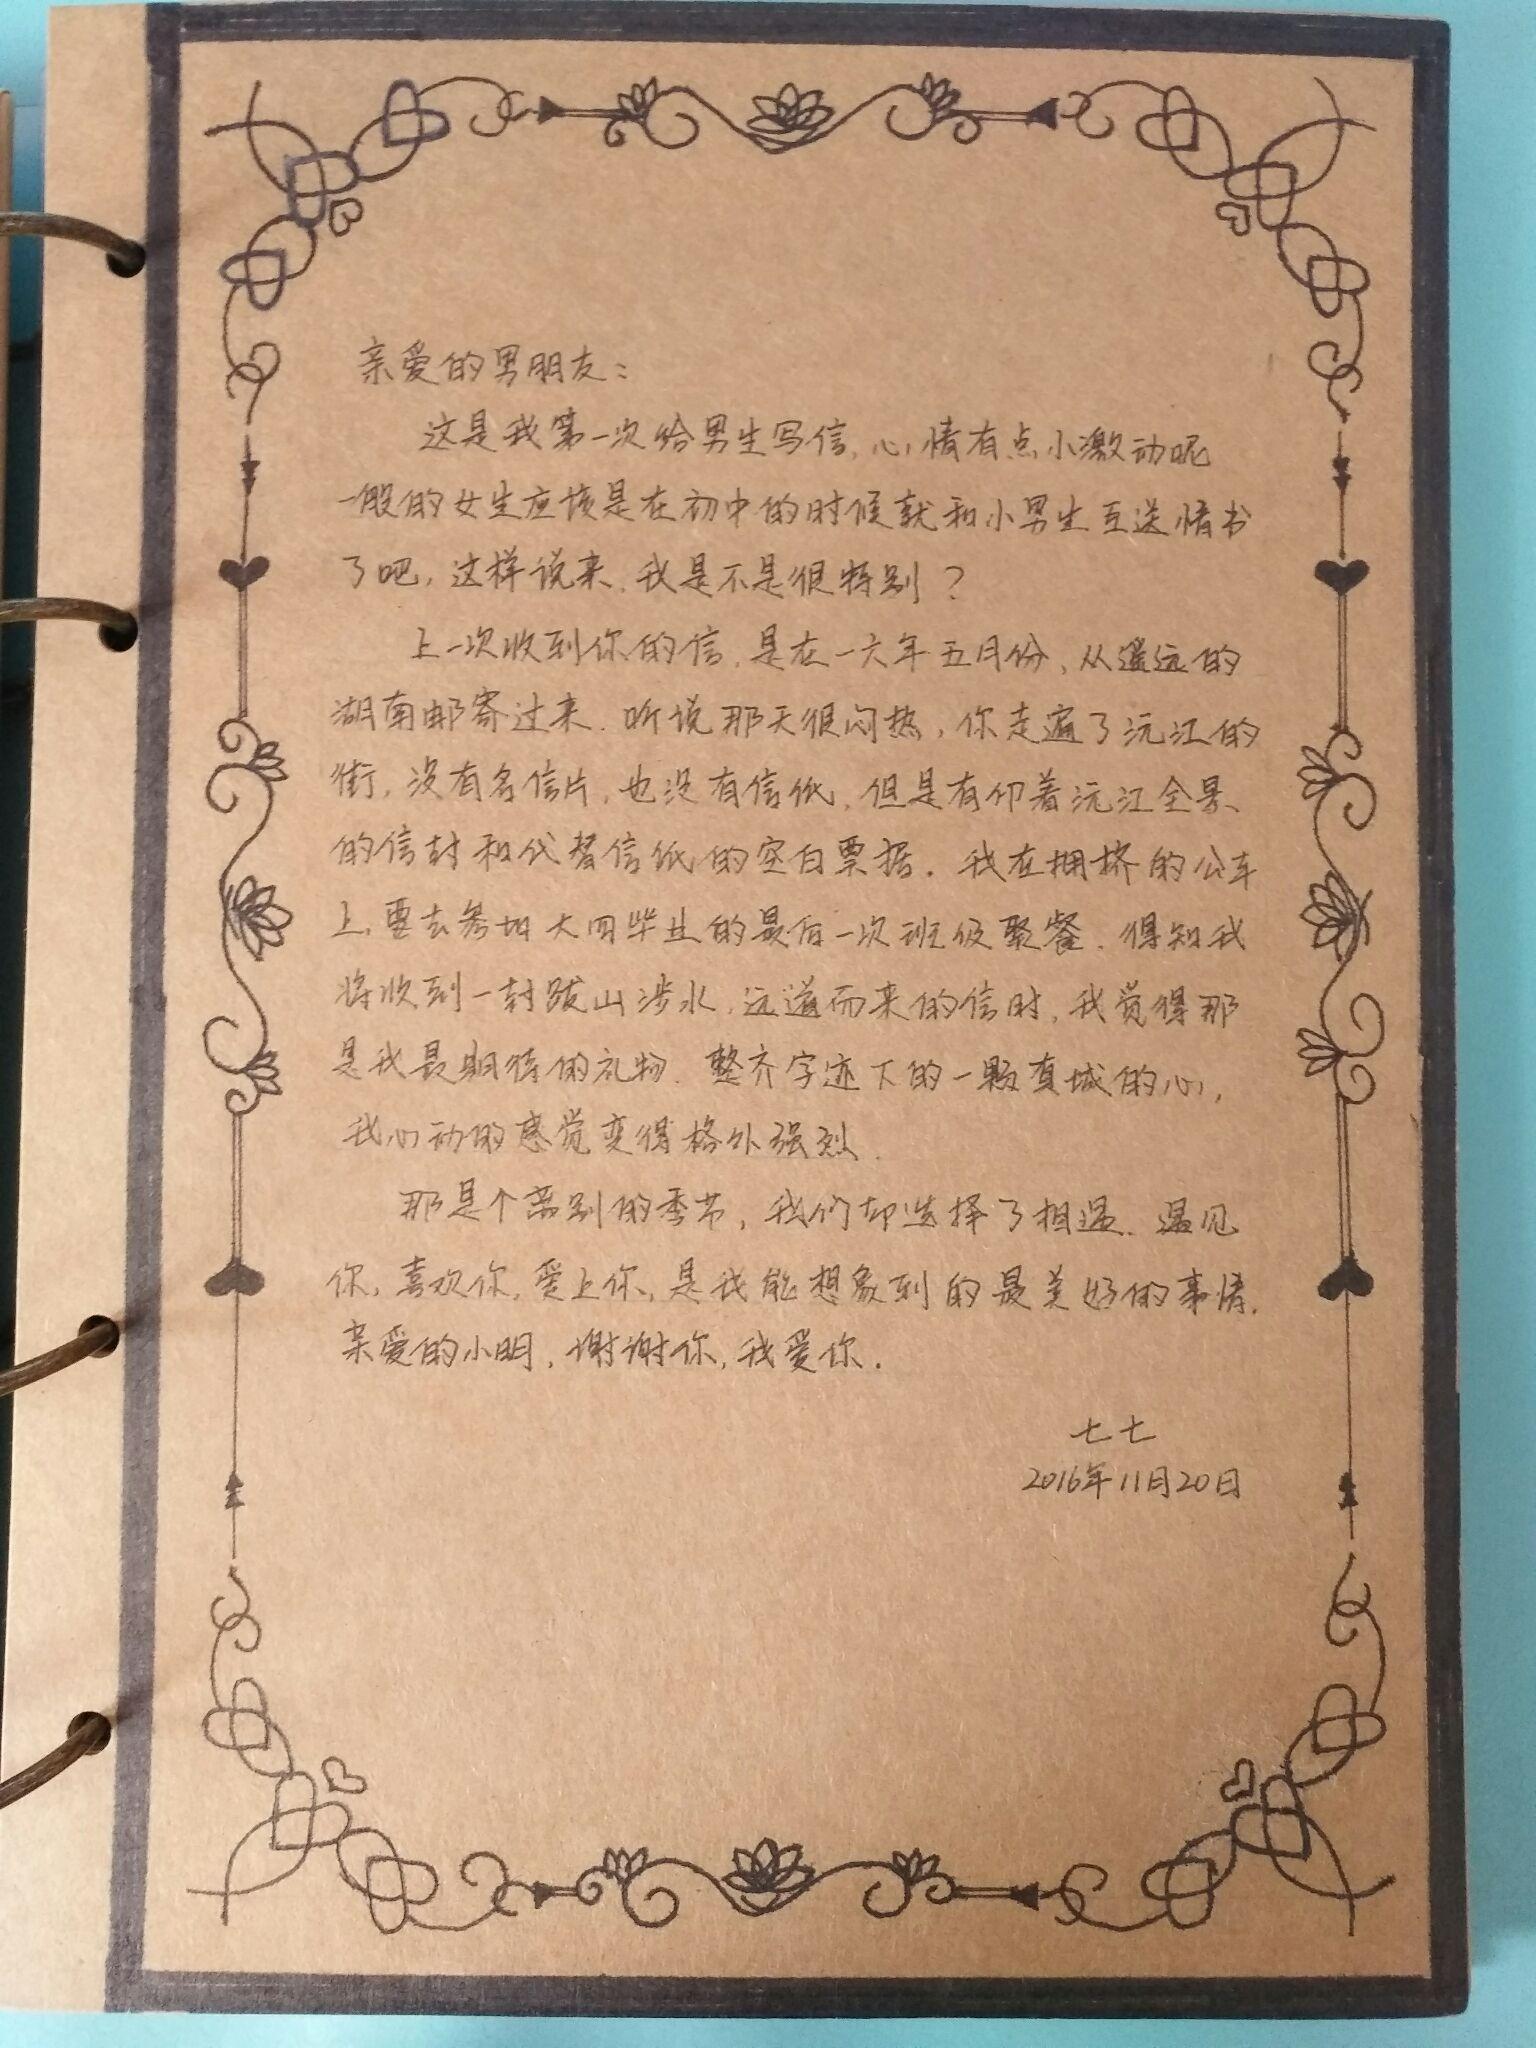 亲爱的男朋友：
这是我第一次给男生写信，心情有点小激动呢
一般的女生应该是在初中的时候就和小男生互送情书
了吧，这样说来，我是不是很特别？
上一次收到你的信，是在一六年五月份，从遥远的
湖南邮寄过来．听说那天很闷热，你走遍了沅江的
街，没有名信片，也没有信纸，但是有印着沅江全景
的信封和代替信纸的空白票据．我在拥挤的公车
上，要去参加大四毕业的最后一次班级聚餐．得知我
将收到一封跋山涉水，远道而来的信时，我觉得那
是我最期待的礼物．整齐字迹下的一颗真城的心，
我心动的感觉变得格外强烈．
那是个离别的季节，我们却选择了相遇．遇见
你，喜欢你，爱上你，是我能想象到的最美好的事情．
亲爱的小明，谢谢你，我爱你．
七七
2016年11月20日